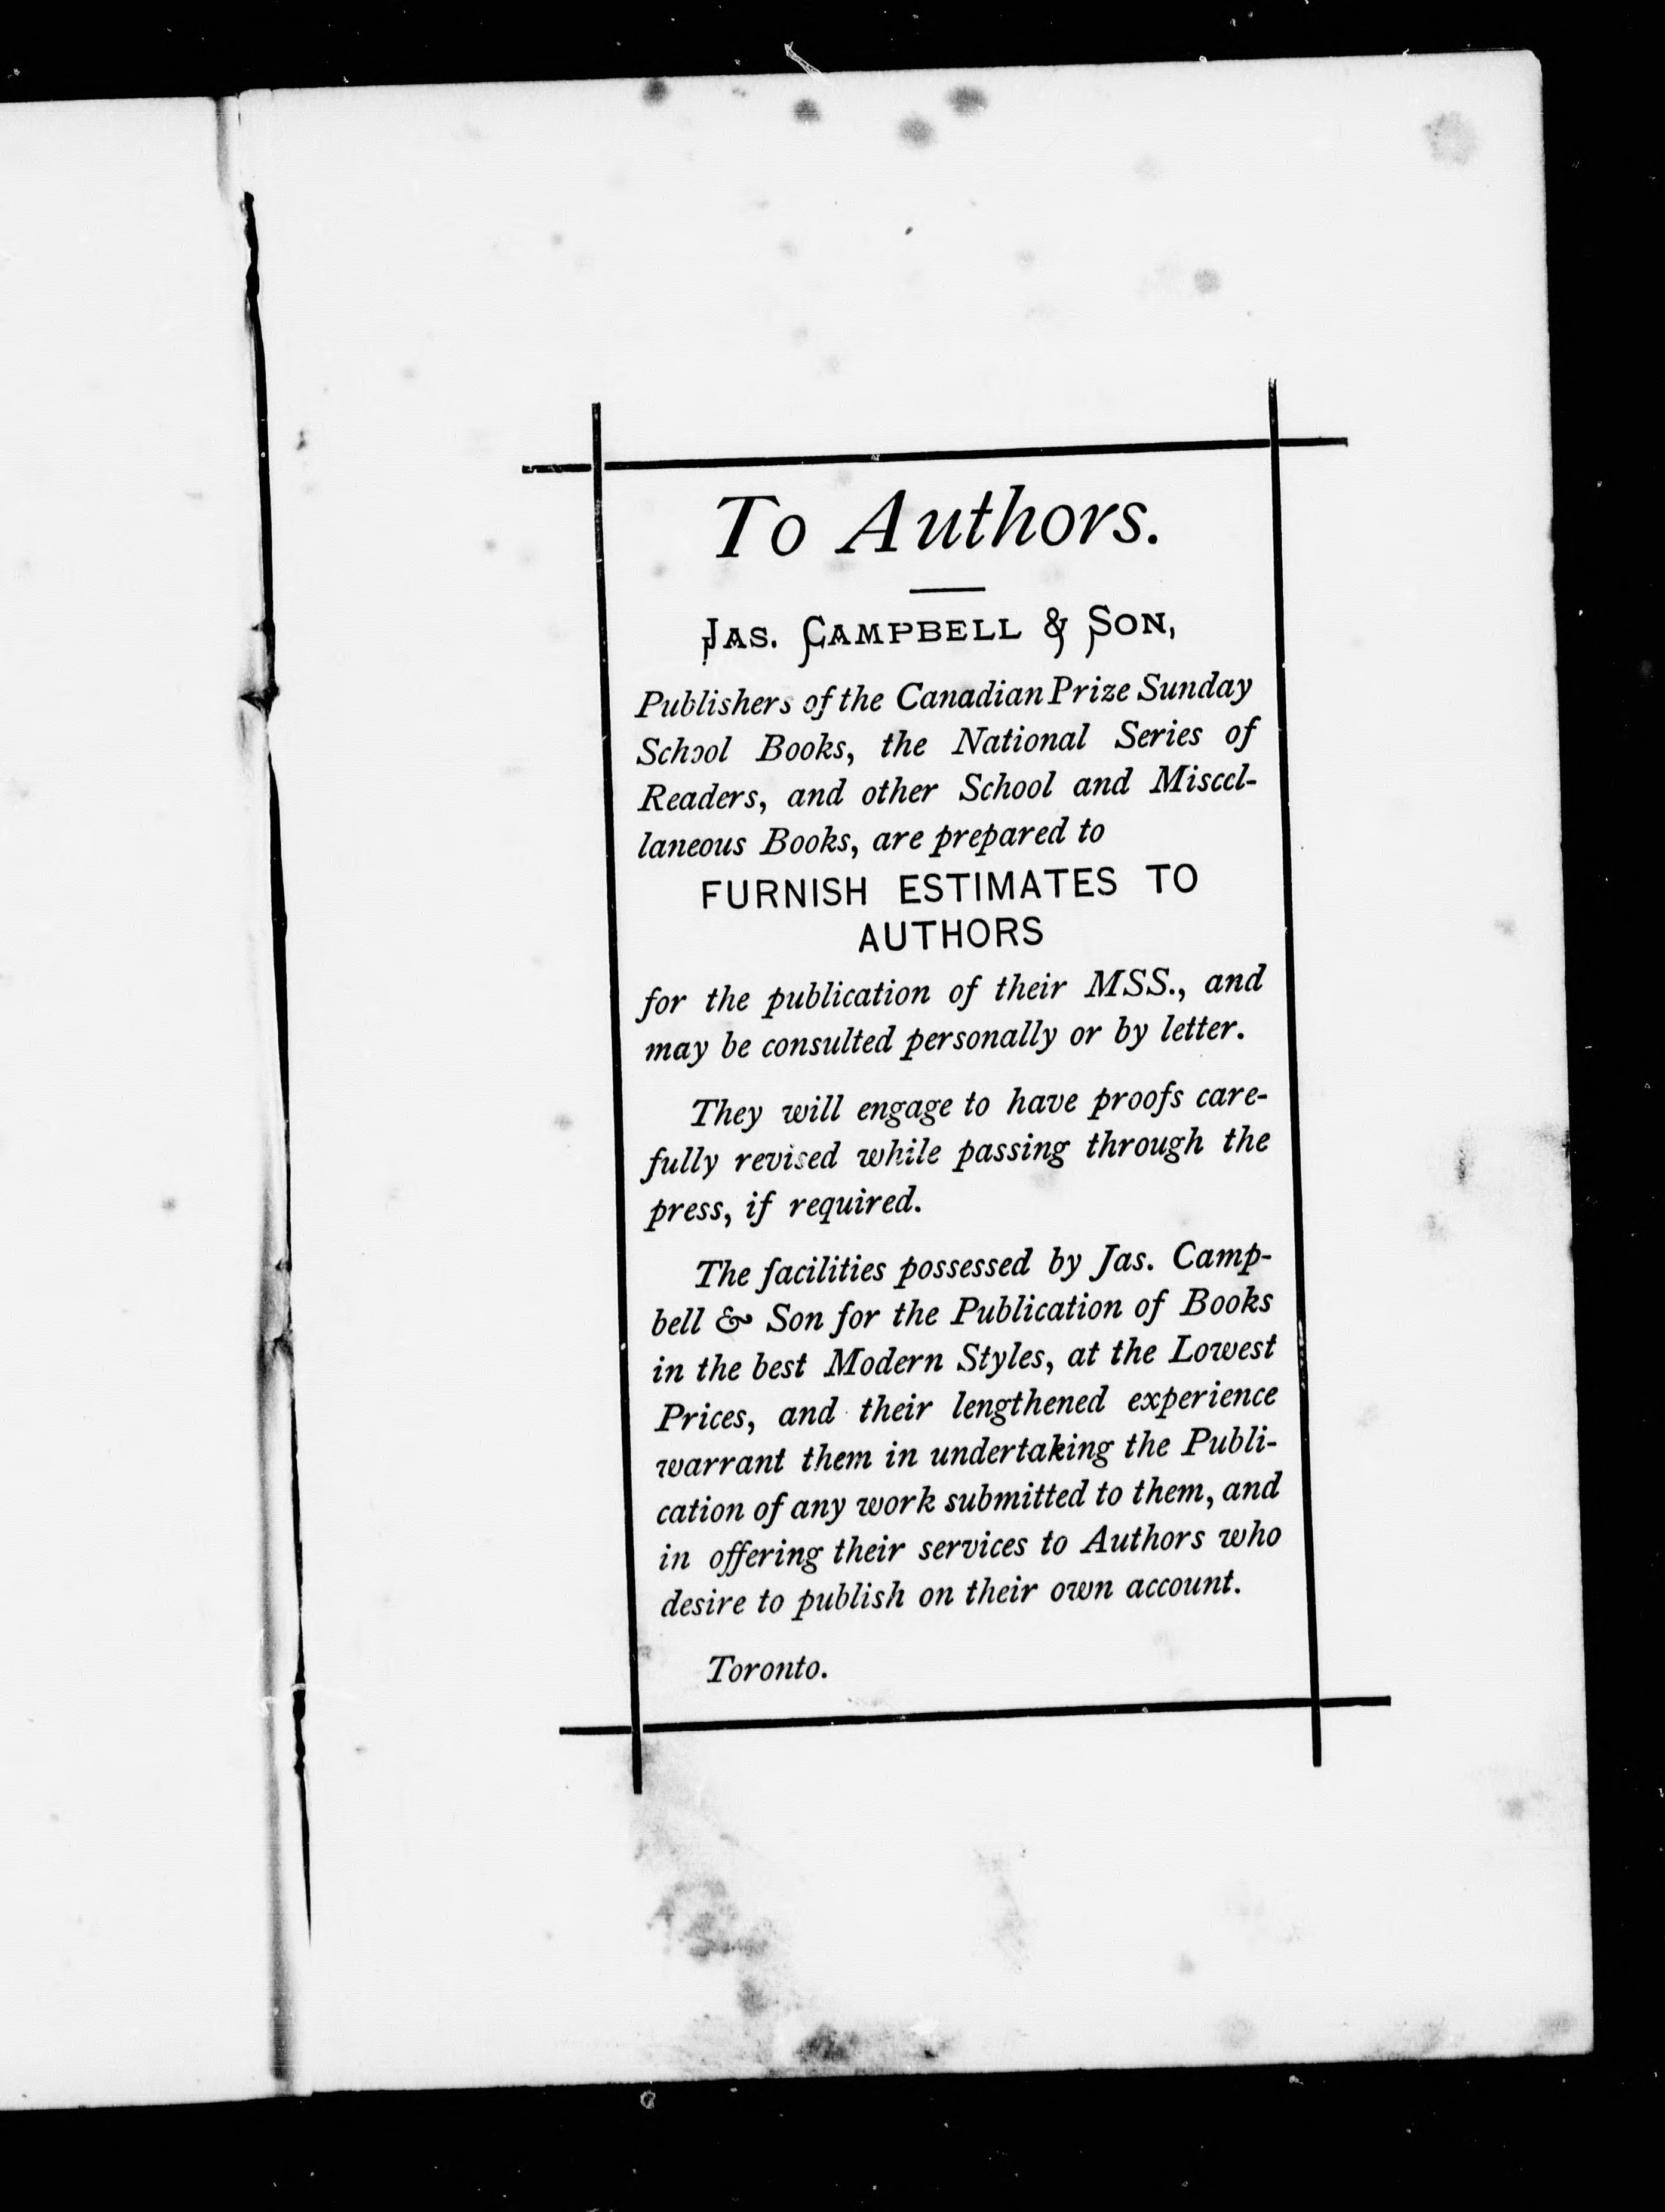 To Authors.
JAS. CAMPBELL & SON,
Publishers of the Canadian Prize Sunday
School Books, the National Series of
Readers, and other School and Miscel-
laneous Books, are prepared to
FURNISH ESTIMATES TO
AUTHORS
for the publication of their MSS., and
may be consulted personally or by letter.
They will engage to have proofs care-
fully revised while passing through the
press, if required.
The facilities possessed by Jas. Camp-
bell & Son for the Publication of Books
in the best Modern Styles, at the Lowest
Prices, and their lengthened experience
warrant them in undertaking the Publi-
cation of any work submitted to them, and
in offering their services to Authors who
desire to publish on their own account.
Toronto.